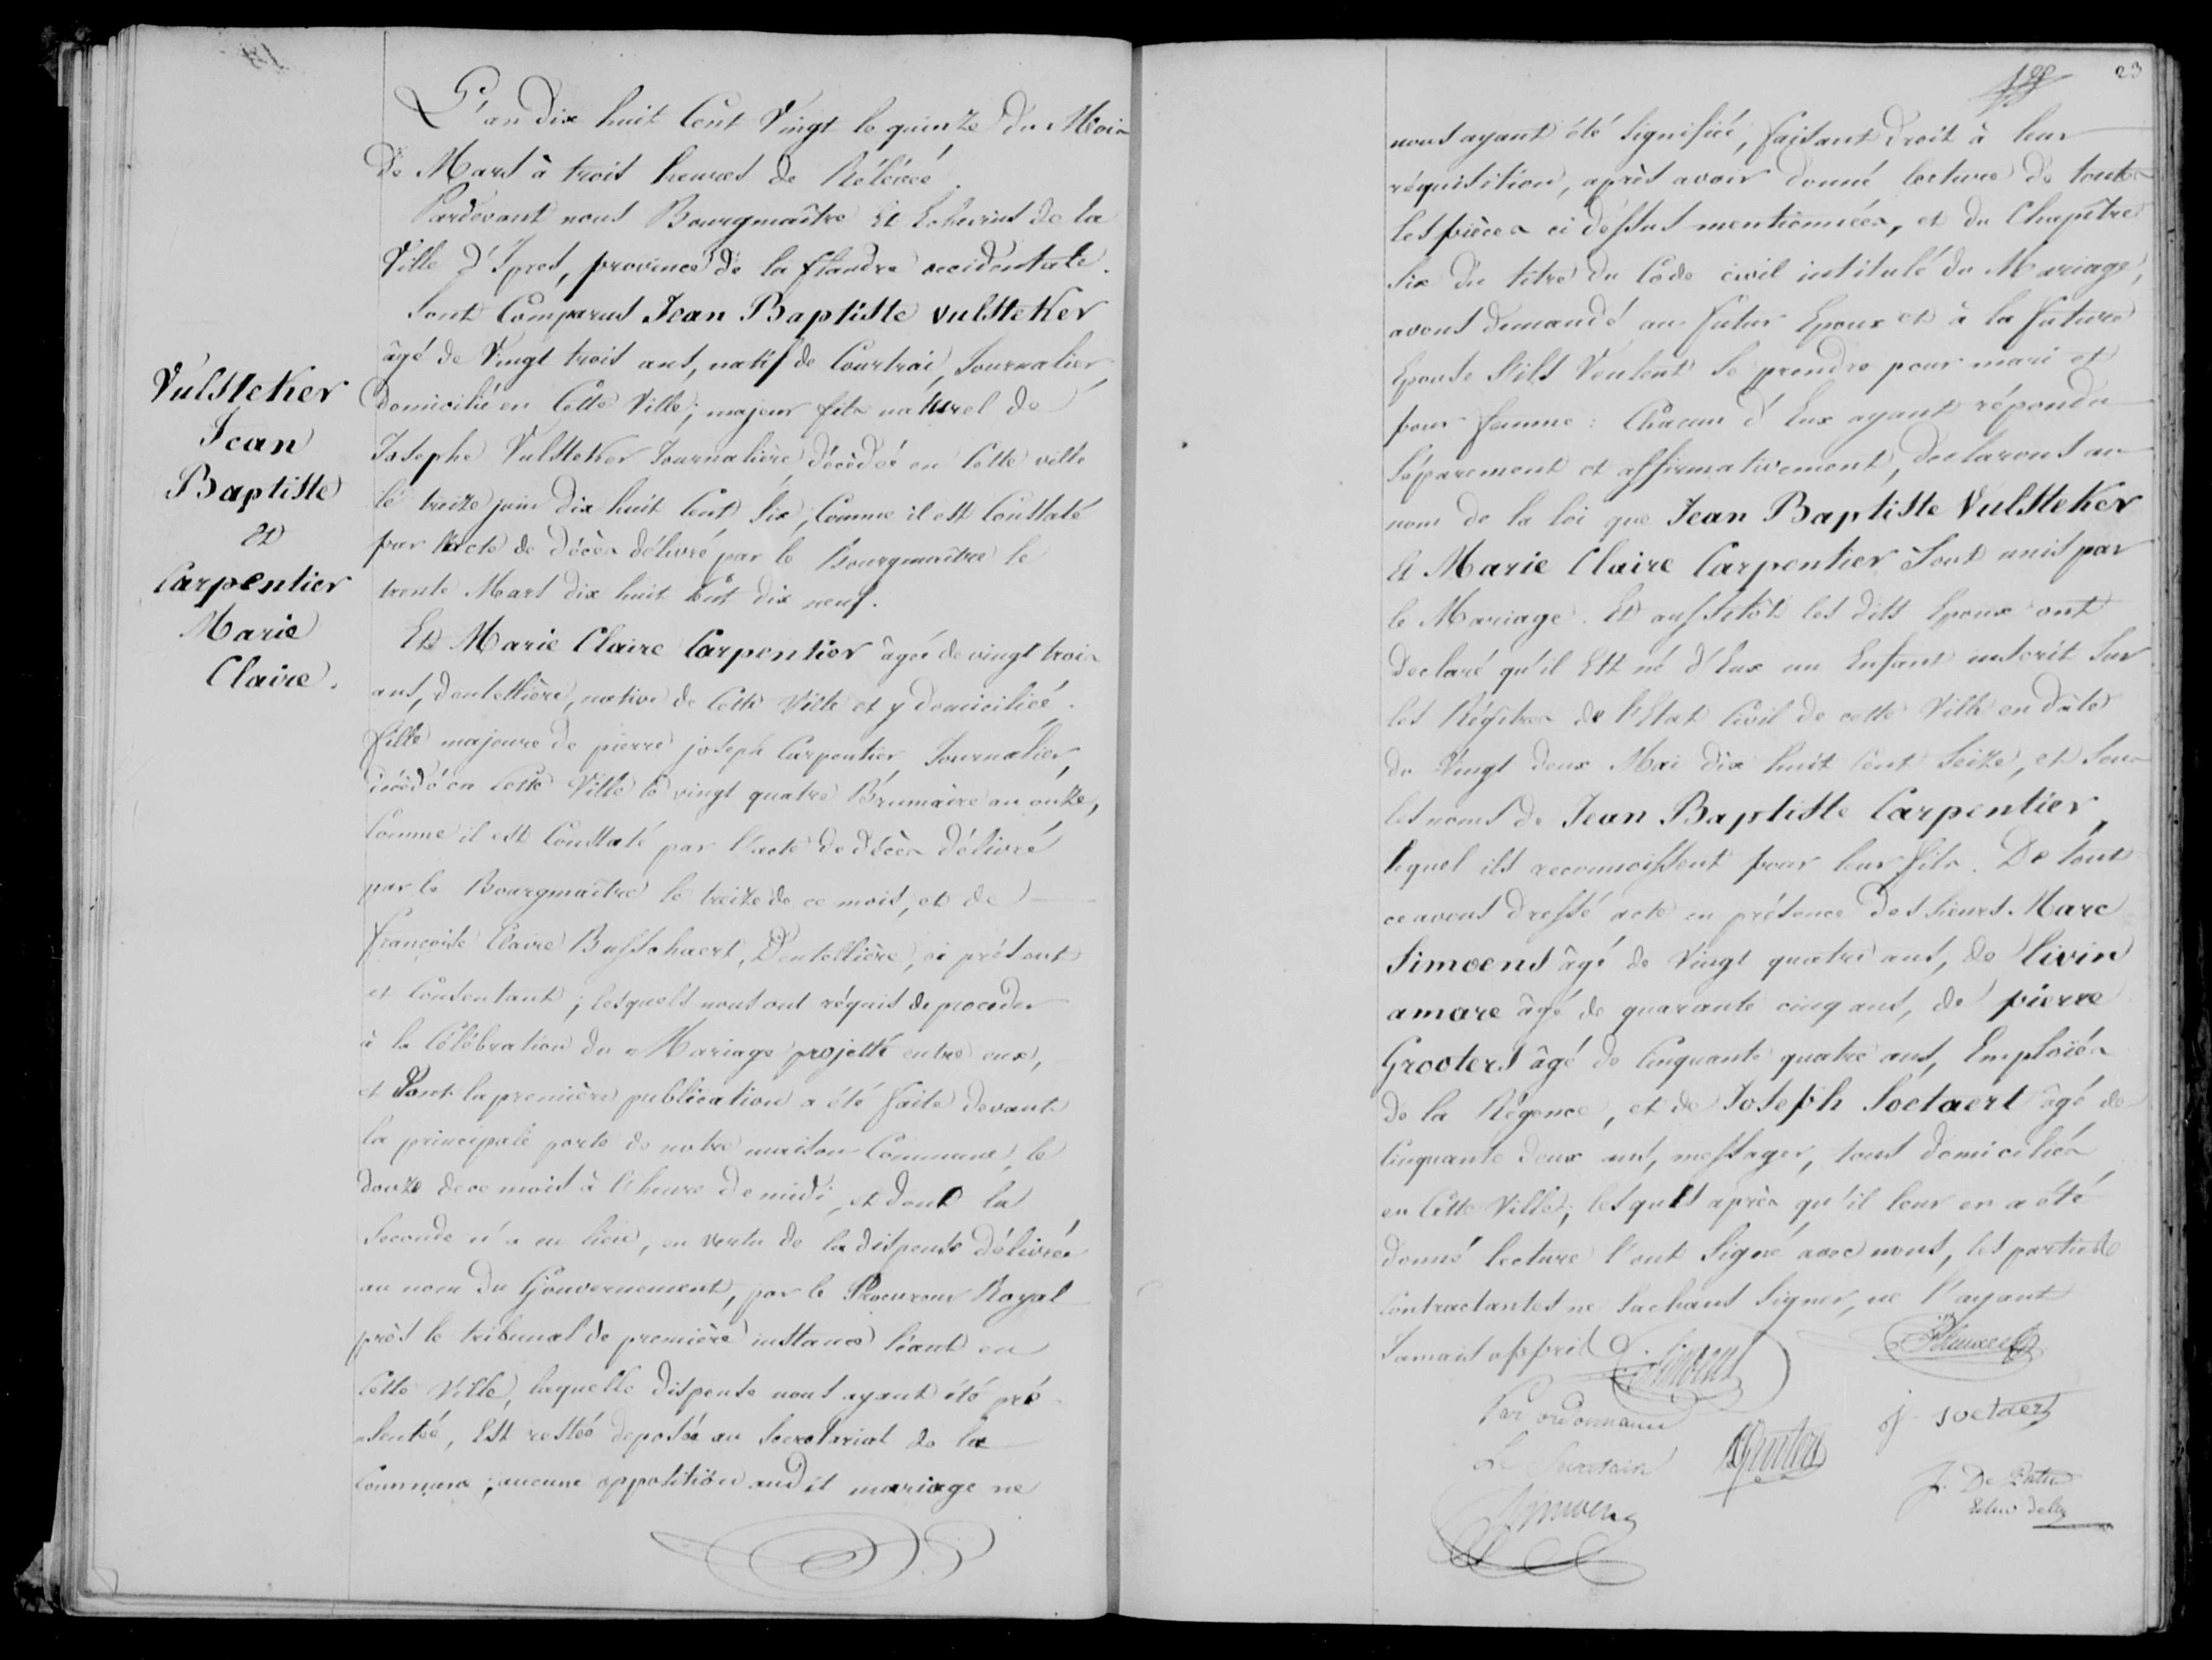 L'an dix huit Cent Vingt le quinze du Mois
de Mars à trois heures de Rélévée.
Pardevant nous Bourgmaître Et Echevins de la
Ville d'Ipres, province de la flandre occidentale.
Sont Comparus Jean Baptiste Vulsteker
âgé de Vingt trois ans, natif de Courtrai, Journalier,
domicilié en Cette Ville; majeur fils naturel de
Josephe Vulsteker Journalière, décédée en Cette ville
le treize juin dix huit Cent Six, Comme il est Constaté
par l'acte de décès délivré par le Bourgmaître le
trente Mars dix huit Cent dix neuf.
Et Marie Claire Carpentier âgée de vingt trois
ans, dentellière, native de Cette Ville et y domiciliée.
fille majeure de pierre joseph Carpentier, Journalier,
décédé en Cette Ville le vingt quatre Brumaire an onze,
Comme il est Constaté par l'acte de décès délivré
par le Bourgmaître le treize de ce mois, et de
françoise Claire Busschaert, Dentellière, ci présente
et Consentant; lesquels nous ont réquis de proceder
à la Célébration du Mariage projetté entre eux,
et Dont la première publication a été faite devant
la principale porte de notre maison Commune, le
douze de ce mois à l'heure de midi, et dont la
Seconde n'a eu lieu, en vertu de la dispense délivrée
au nom du Gouvernement, par le Procureur Royal
près le tribunal de première instance séant en
Cette Ville, laquelle dispense nous ayant été pré
sentée, Est restée deposée au Secretariat de la
Commune; aucune opposition audit mariage ne
Vulsteker
Jean
Baptiste
et
Carpentier
Marie
Claire.
23
nous ayant été signifiée, faisant droit à leur
réquisition, après avoir donné lecture de toutes
les pièces ci dessus mentionnées, et du Chapître
Six du titre du Code civil intitulé du Mariage,
avons demandé au futur Epoux et à la future
Epouse S'ils Veulent Se prendre pour mari et
pour femme: Chacun d'Eux ayant répondu
Séparement et affirmativement, declarons au
nom de la loi que Jean Baptiste Vulsteker
Et Marie Claire Carpentier Sont unis par
le Mariage. Et aussitôt les dits Epoux ont
Declaré qu'il Est né d'Eux un Enfant inscrit Sur
les Régitres de l'Etat Civil de cette Ville en date
du Vingt deux Mai dix huit Cent Seize, et Sous
les noms de Jean Baptiste Carpentier,
lequel ils reconnoissent pour leur fils. De tout
ce avons dressé acte en présence des Sieurs Marc
Simoens âgé de Vingt quatre ans, de livin
amare âgé de quarante cinq ans, de pierre
Grooters âgé de Cinquante quatre ans, Emploiés
de la Régence, et de Joseph Soetaert âgé de
Cinquante deux ans, messager, tous domiciliés
en Cette Ville; lesquels après qu'il leur en a été
donné lecture l'ont Signé avec nous, les parties
Contractantes ne Sachant Signer, ne l'ayant
Jamais appris
Simoens
Par ordonnance
Le Secretaire
Grooters
J. Soetaert
Simoens